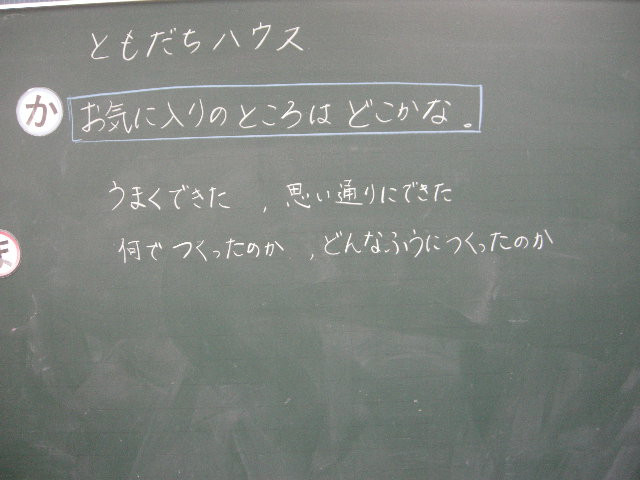 ともだちハウス
か お気に入りのところは どこかな。
うまくできた , 思い通りにできた
何で つくったのか , どんなふうにつくったのか
ま